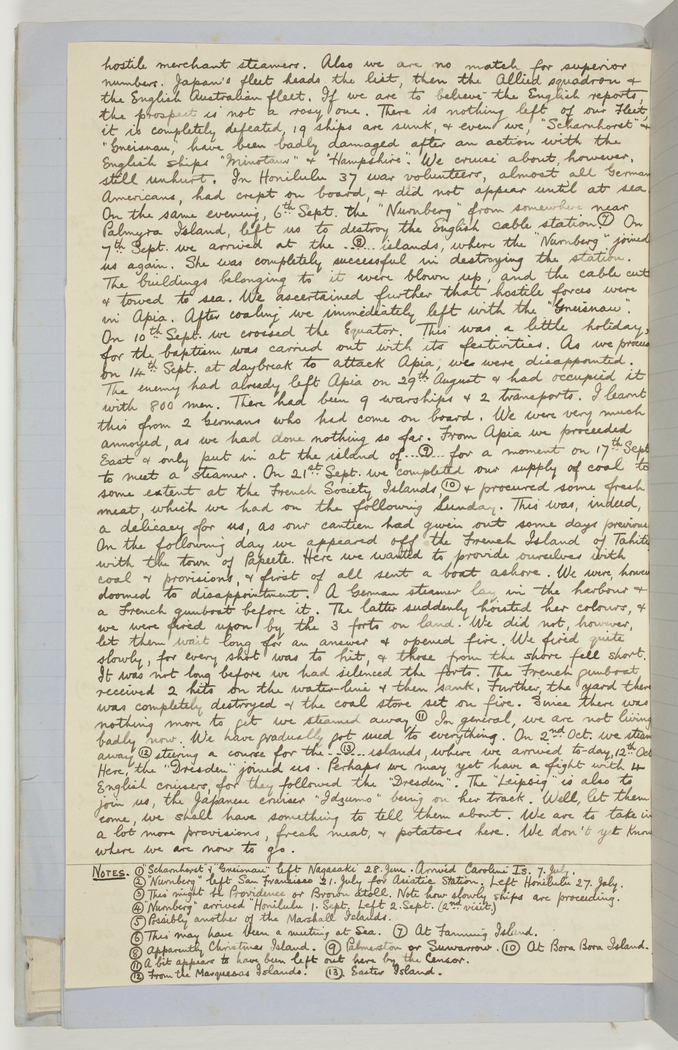 hostile merchant steamers. Also we are no match for superior
numbers. Japan's fleet heads the list, then the Allied squadron &
the English Australian fleet. If we are to believe the English reports,
the prospect is not a rosy one. There is nothing left of our Fleet,
it is completely defeated, 19 ships are sunk, & even we, "Scharnhorst" &
"Gneisnau", have been badly damaged after an action with the
English ships "Minotaur" & "Hampshire". We cruise about, however,
still unhurt. In Honilulu 37 war volunteers, almost all German
Americans, had crept on board, & did not appear until at sea
On the same evening, 6th Sept. the "Nurnberg" from somewhere near
Palmyra Island, left us to destroy the English cable station. ⑦ On
7th Sept. we arrived at the ...⑧... islands, where the "Nurnberg" joined
us again. She was completely successful in destroying the station.
The buildings belonging to it were blown up, and the cable cut
& towed to sea. We ascertained further that hostile forces were
in Apia. After coaling we immediately left with the "Gneisnau".
On 10th Sept. we crossed the Equator. This was a little holiday,
for the baptism was carried out with its festivities. As we
on 14th Sept. at daybreak to attack Apia, we were disappointed.
The enemy had already left Apia on 29th August & had occupied it
with 800 men. There had been 9 warships & 2 transports. I learnt
this from 2 Germans who had come on board. We were very much
annoyed, as we had done nothing so far. From Apia we proceeded
East & only put in at the island of ...⑨... for a moment on 17th Sept
to meet a steamer. On 21st Sept. we completed our supply of coal to
some extent at the French Society Islands ⑩ & procured some fresh
meat, which we had on the following Sunday. This was, indeed,
a delicacy for us, as our canteen had given out some days previous
On the following day we appeared off the French Island of Tahiti
with the town of Papeete. Here we wanted to provide ourselves with
coal & provisions, & first of all sent a boat ashore. We were, howev
doomed to disappointment. A German steamer lay in the harbour &
a French gunboat before it. The latter suddenly hoisted her colours, &
we were fired upon by the 3 forts on land. We did not, however,
let them wait long for an answer & opened fire. We fired quite
slowly, for every shot was to hit, & those from the shore fell short.
It was not long before we had silenced the forts. The French gunboat
received 2 hits on the water-line & then sank. Further, the yard there
was completely destroyed & the coal store set on fire. Since there was
nothing more to get we steamed away ⑪ In general, we are not living
badly now. We have gradually got used to everything. On 2nd Oct. we steam
away ⑫ steering a course for the ...⑬... islands, where we arrived to-day, 12th Oct
Here, the "Dresden" joined us. Perhaps we may yet have a fight with 4
English cruisers, for they followed the "Dresden". The "Leipsig" is also to
join us, the Japanese cruiser "Idzumo" being on her track. Well, let them
come, we shall have something to tell them about. We are to take in
a lot more provisions, fresh meat, & potatoes here. We don't yet know
where we are now to go.
NOTES. ① "Scharnhorst" & "Gneisnau" left Nagasaki 28. June. Arrived Caroline Is. 7. July.
② "Nurnberg" left San Francisco 21. July for Asiatic Station. Left Honilulu 27. July.
③ This might be Providence or Brown atoll. Note how slowly ships are proceeding.
④ "Nurnberg" arrived Honilulu 1. Sept. Left 2. Sept. (2nd visit)
⑤ Possibly another of the Marshall Islands.
⑥ This may have been a meeting at Sea. ⑦ At Fanning Island.
⑧ Apparently Christmas Island. ⑨ Palmerston or Suwarrow. ⑩ At Bora Bora Island.
⑪ A bit appears to have been left out here by the Censor.
⑫ From the Marquesas Islands. ⑬ Easter Island.